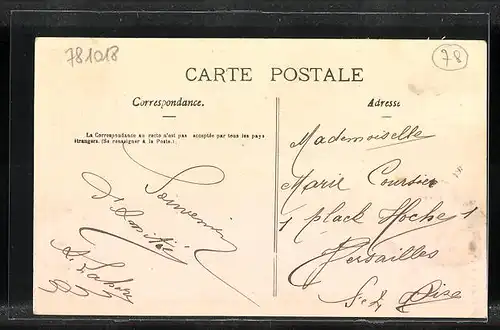 781018
78
CARTE POSTALE
Correspondance.
Adresse
La Correspondance au recto n'est pas acceptée par tous les pays
étrangers. (Se renseigner à la Poste.)
Souvenir
d'amitié
Mademoiselle
Marie Coursier
1 place Hoche 1
Versailles
S. & Oise